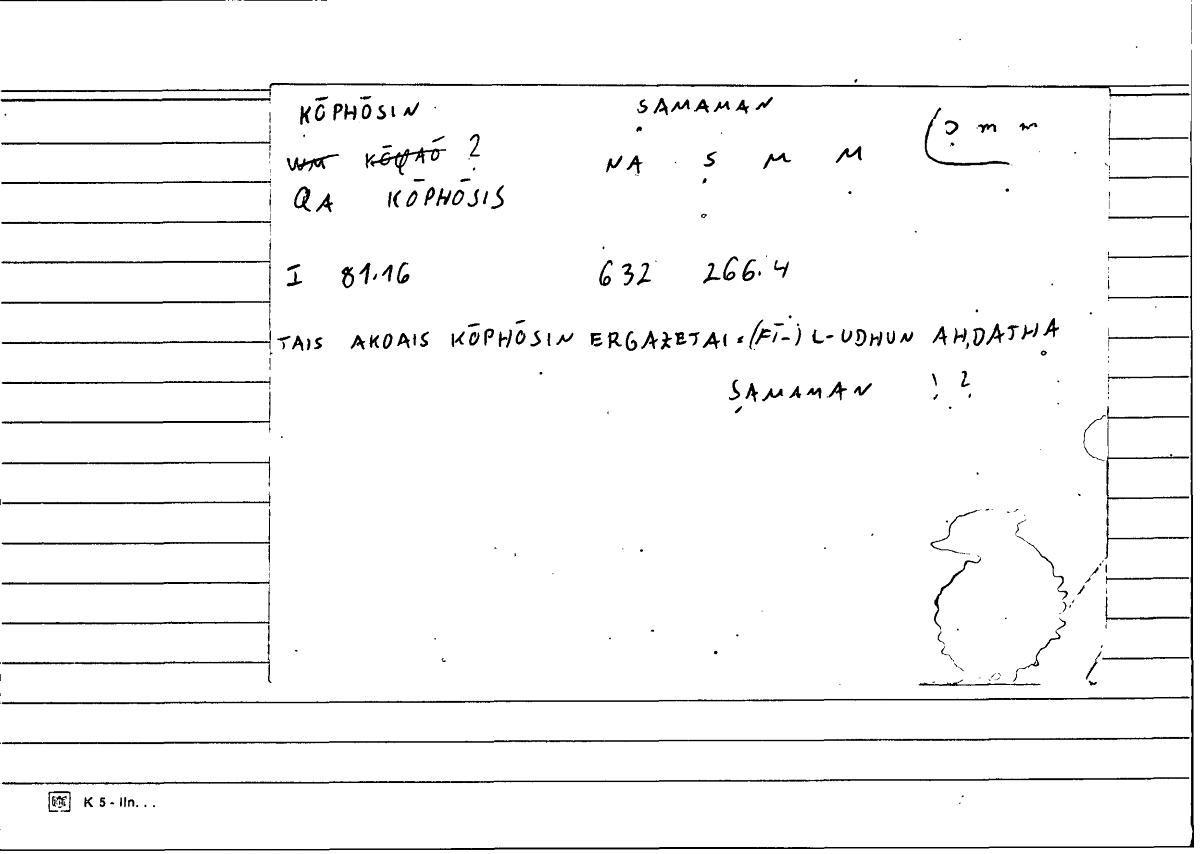 KŌPHŌSIN ṢAMAMAN
NA Ṣ M M
QA KŌPHŌSIS
I 81.16 632 266.4
TAIS AKOAIS KŌPHŌSIN ERGAZETAI = (FĪ-) L-UDHUN AḤDATHA
ṢAMAMAN ! ?
K 5 - IIn. . .